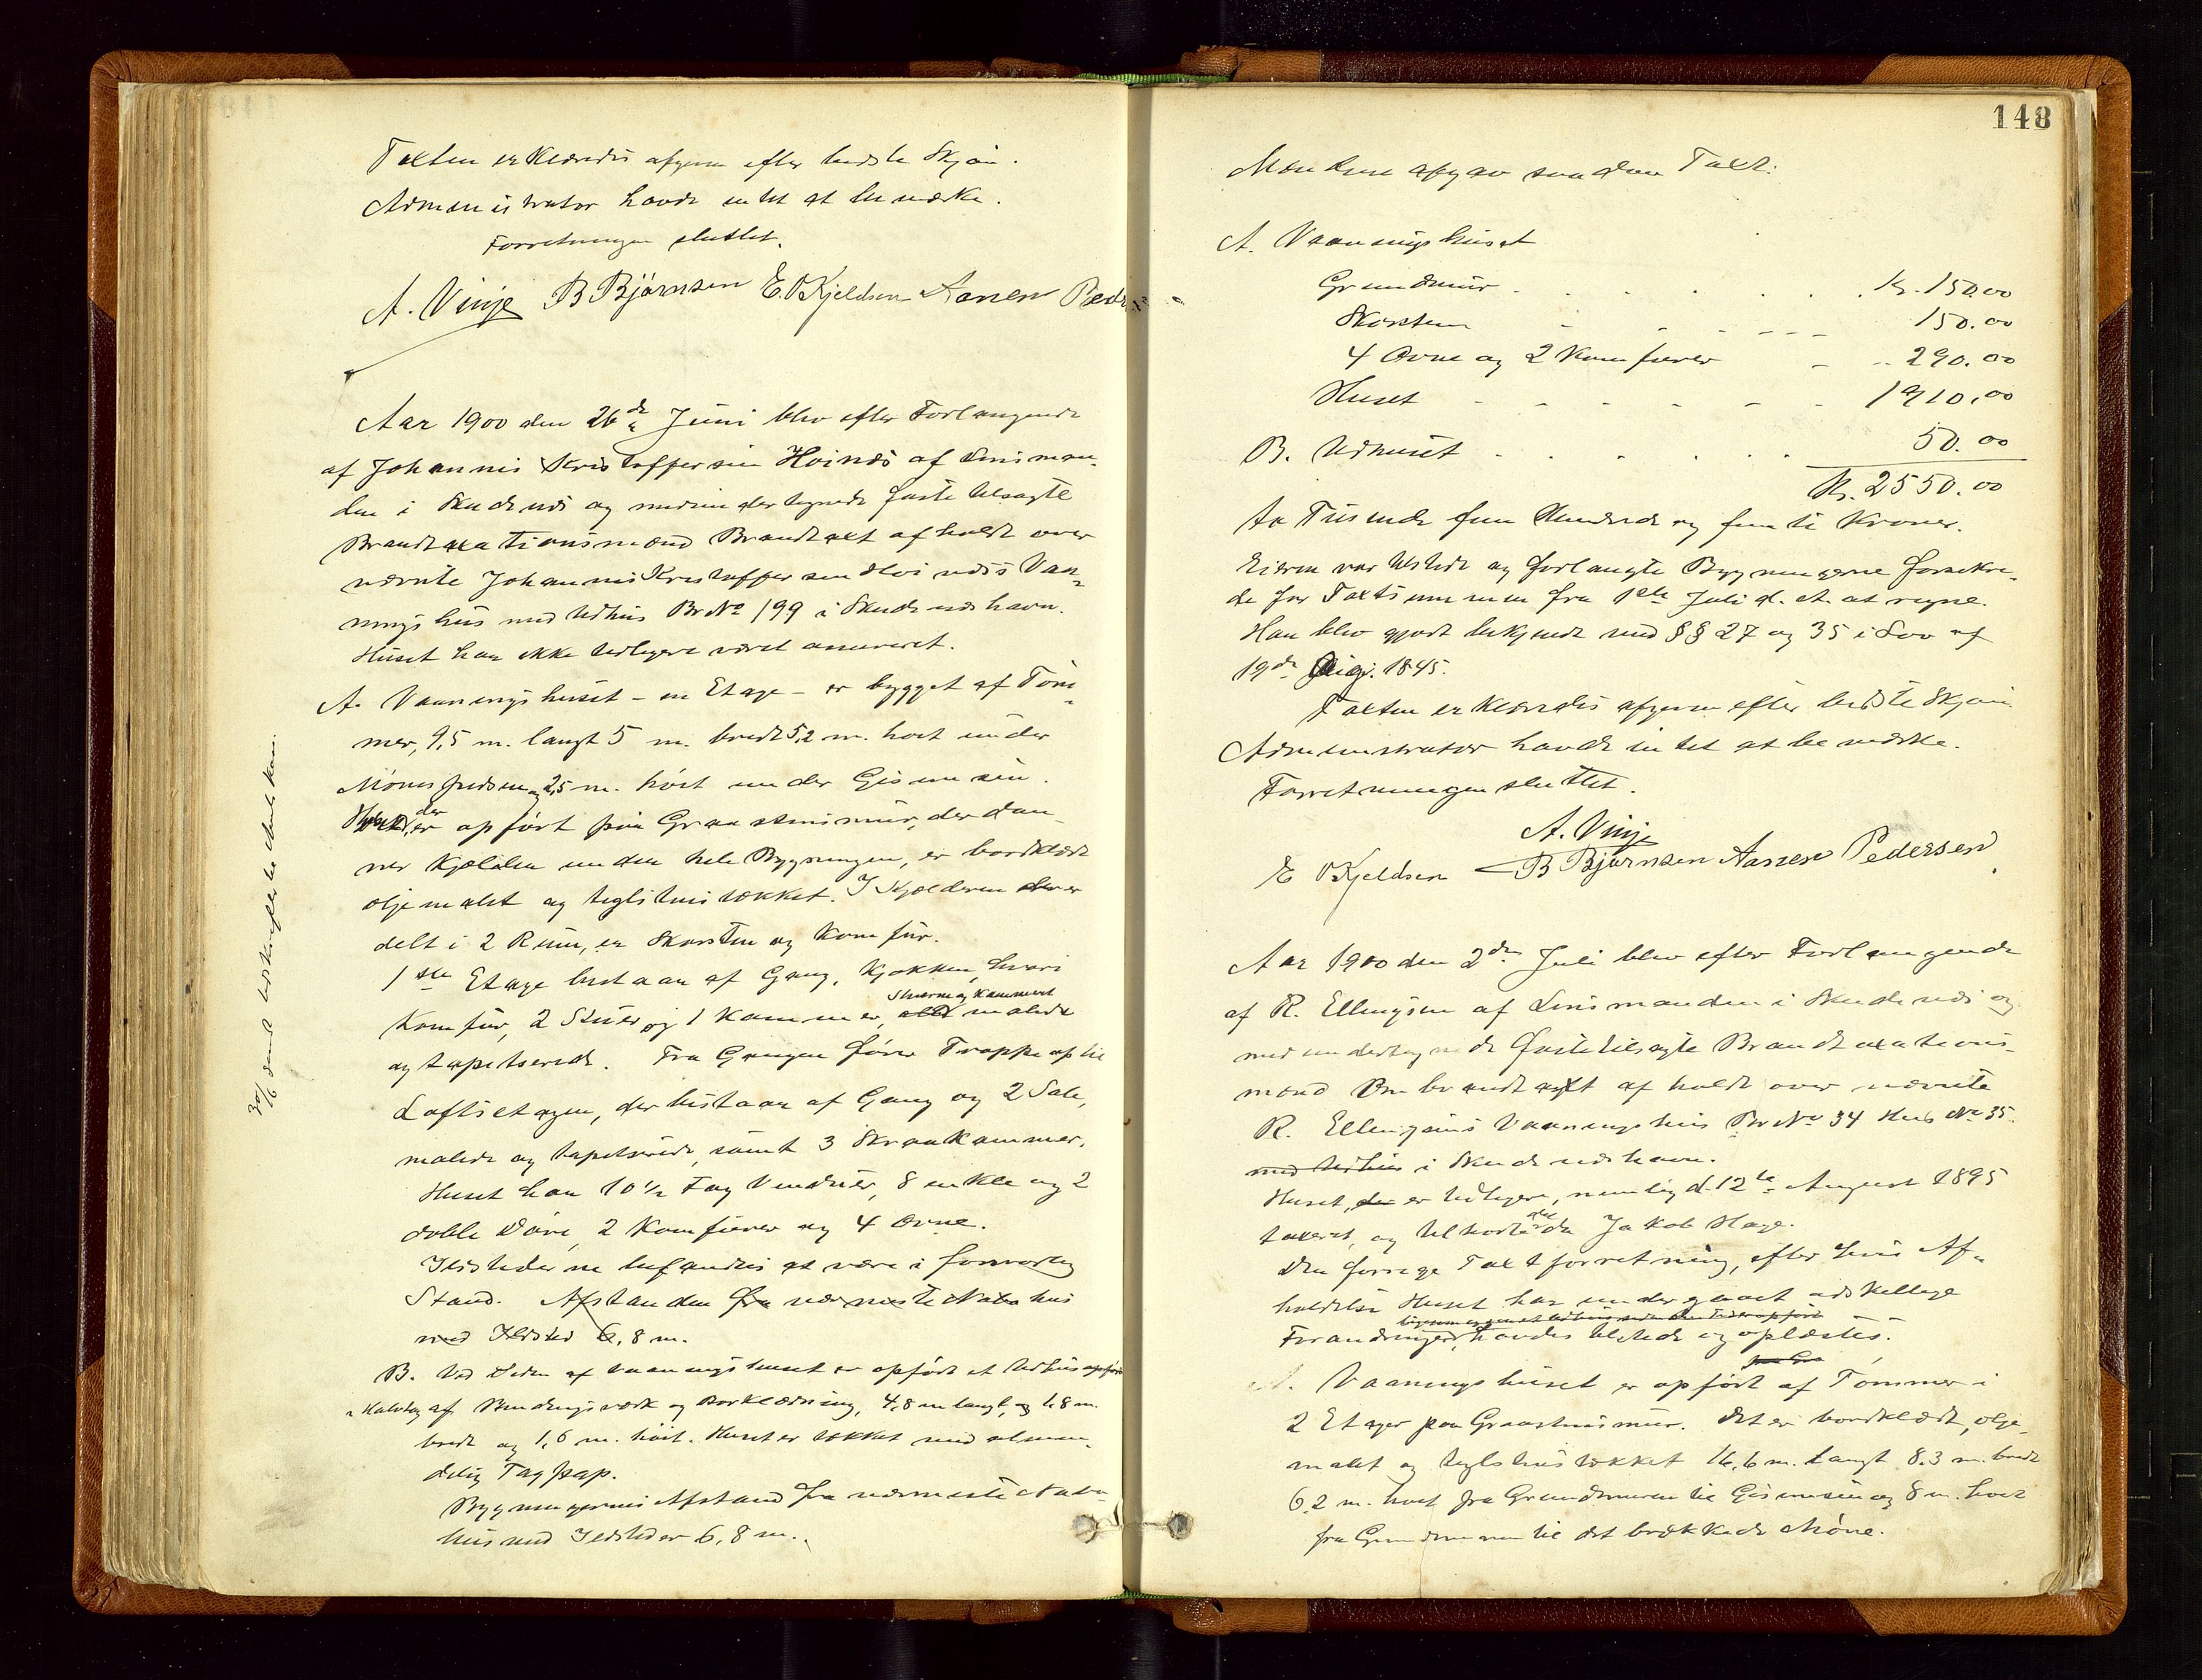 Taxten erklæredes afgiven efter bedste Skjøn.
Administrator havde intet at bemærke.
Forretningen sluttet.
A. Vinje B Bjørnsen E. Kjeldsen Aanen Peders
Aar 1900 den 26de Juni blev efter Forlangende
af Johannis Kristoffersen Høinæs af Linsman-
den i Skudenæs og medundertegnede faste tilsagte
Brandtaxationsmænd Brandtaxt afholdt over
nævnte Johannis Kristoffersen Høinæs's Vaa-
ningshus med Udhus Br No 199 i Skudeneshavn.
Huset har ikke tidligere været assureret.
A. Vaaningshuset - en Etage - er bygget af Tøm-
mer, 9,5 m. langt 5 m. bredt 5,2 m. høit under
Mønes og 2,5 m. høit under Gesimsen.
Huset, der er opført paa Graastensmur, der dan-
ner Kjælder under hele Bygningen, er bordklædt
oljemalet og teglstenstækket. I Kjælderen der er
delt i 2 Rum, er Skorsten og Komfur.
1ste Etage bestaar af Gang, Kjøkken, hvori
Stuerne og Kammeret
Komfur, 2 Stuer og 1 Kammer, alle malede
og tapetserede. Fra Gangen fører Trappe op til
Loftsetagen, der bestaar af Gang og 2 Sale,
malede og tapetserede, samt 3 Skraakammer.
Huset har 10 1/2 Fag Vinduer, 8 enkle og 2
doble Døre, 2 Komfurer og 4 Ovne.
Ildstederne befandtes at være i forsvarlig
Stand. Afstanden fra nærmeste Nabohus
med Ildsted 6,8 m.
B. Ved Siden af Vaaningshuset er opført et Udhus opført
i Halvtag af Bindingsværk og Bordklædning, 4,8 m langt, og 1,8 m.
bredt og 1,6 m. høit. Huset er tækket med almin-
delig Tagpap.
Bygningernes Afstand fra nærmeste Nabo-
hus med Ildsteder 6,8 m.
30/6
148
Mændene afgav saadan Taxt:
A. Vaaningshuset
Grundmur . . . . . . . Kr. 150.00
Skorsten - - - - - - 150.00
4 Ovne og 2 Komfurer - - 290.00
Huset - - - - - - - 1910.00
B. Udhuset . . . . . . 50.00
Kr. 2550.00
To Tusinde fem Hundrede og femti Kroner.
Eieren var tilstede og forlangte Bygningerne forsikre-
de for Taxtsummen fra 1ste Juli d. A. at regne.
Han blev gjort bekjendt med §§ 27 og 35 i Lov af
19de Aug. 1845.
Taxten erklæredes afgiven efter bedste Skjøn
Administrator havde intet at bemærke.
Forretningen sluttet.
A. Vinje
E Kjeldsen B Bjørnsen Aanen Pedersen
Aar 1900 den 2den Juli blev efter Forlangende
af R. Ellingsen af Linsmanden i Skudenæs og
medundertegnede faste tilsagte Brandtaxations-
mænd Ombrandtaxt afholdt over nævnte
R. Ellingsens Vaaningshus Br No 34 Hus No 35.
med Udhus i Skudeneshavn.
Huset, der er tidligere, nemlig d. 12te August 1895
taxeret, og tilhørte da Jakob Hage.
Den forrige Taxtforretning, efter hvis Af-
holdelse Huset har undergaaet adskillige
Forandringer, havdes tilstede og oplæstes.
A. Vaaningshuset er opført af Tømmer i
2 Etager paa Graastensmur. Det er bordklædt, olje-
malet og teglstenstækket 16,6 m. langt 8,3 m. bredt
6,2 m. høit fra Grundmuren til Gesimsen og 8 m. høit
fra Grundmuren til det brækkede Møne.